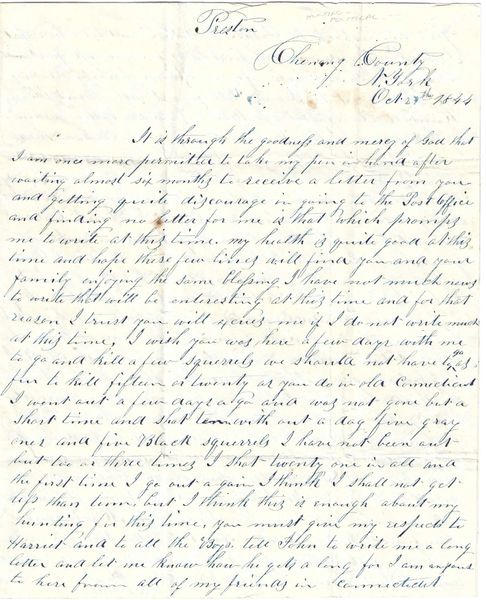 Preston
Chenang County
N. York
Oct 27th 1844
It is through the goodness and mercy of God that
I am once more permitted to take my pen in hand after
waiting almost six months to receive a letter from you
and getting quite discourage in going to the Post Office
and finding no letter for me is that which promps
me to write at this time. my health is quite good at this
time and hope these few lines will find you and your
family enjoying the same blessing I have not much news
to write that will be interesting at this time and for that
reason I trust you will me if I do not write much
at this time, I wish you was here a few days with me
to go and kill a few squerels we should not have to go as
fur to kill fifteen or twenty as you do in old Connecticut
I went out a few days a go and was not gone but a
short time and shot tenn with out a dog five gray
ones and five Black squerrels I have not been out
but two or three times I shot twenty one in all and
the first time I go out a gain I think I shall not get
less than tenn, but I think this is enough about my
hunting for this time, you must give my respects to
Harriet and to all the Boys. tell John to write me a long
letter and let me know how he gets a long for I am
to here from all of my friends in Connecticut